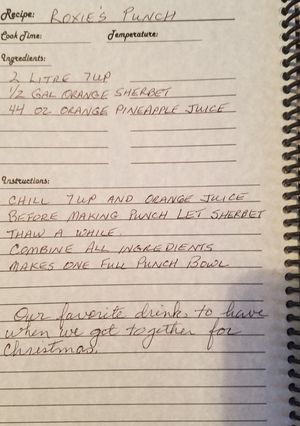 Recipe: ROXIE'S PUNCH
Cook Time: Temperature:
Ingredients:
2 LITRE 7UP
1/2 GAL ORANGE SHERBET
44 OZ ORANGE PINEAPPLE JUICE
Instructions:
CHILL 7UP AND ORANGE JUICE
BEFORE MAKING PUNCH LET SHERBET
THAW A WHILE.
COMBINE ALL INGREDIENTS
MAKES ONE FULL PUNCH BOWL
Our favorite drink to have
when we got together for
Christmas.